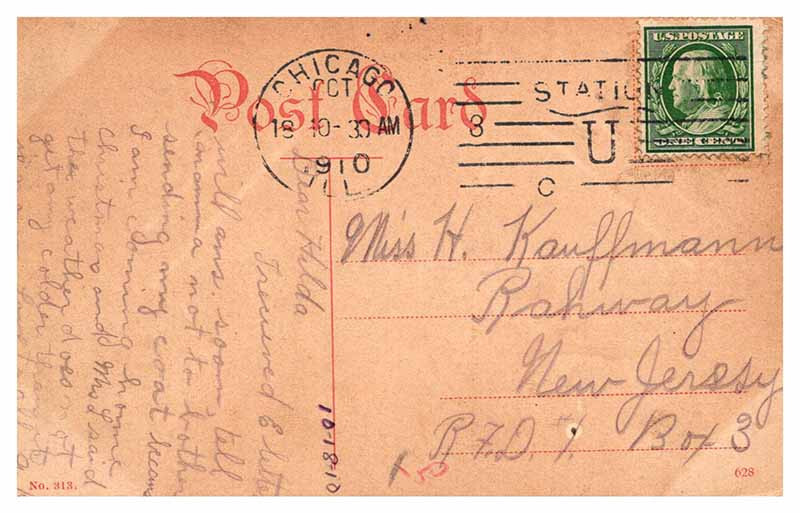 Post Card
CHICAGO
OCT
18 10-30 AM
1910
ILL.
STATION
8
U
C
U.S. POSTAGE
ONE CENT
Miss H. Kauffmann
Rahway
New Jersey
R.F.D. 1. Box 3
Dear Hilda
I received E lette
will ans. soon, tell
mamma not to bother
sending my coat
I am coming home
Christmas and Mrs L said
the weather does not
get any colder than it
10 18-10
No. 313.
628